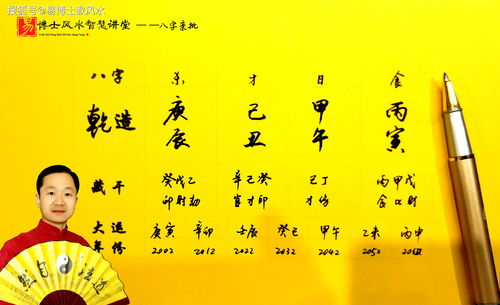 搜狐号@易博士教风水
易 博士风水智慧讲堂 ——八字亲批
Yi Bo Shi Feng Shui Zhi Hui Jiang Tang
八字 杀 才 日 食
乾造 庚 己 甲 丙
辰 丑 午 寅
藏干 癸戊乙 辛己癸 己丁 丙甲戊
印财劫 官才印 才伤 食口财
大运 庚寅 辛卯 壬辰 癸巳 甲午 乙未 丙申
年份 2002 2012 2022 2032 2042 2052
然自法道